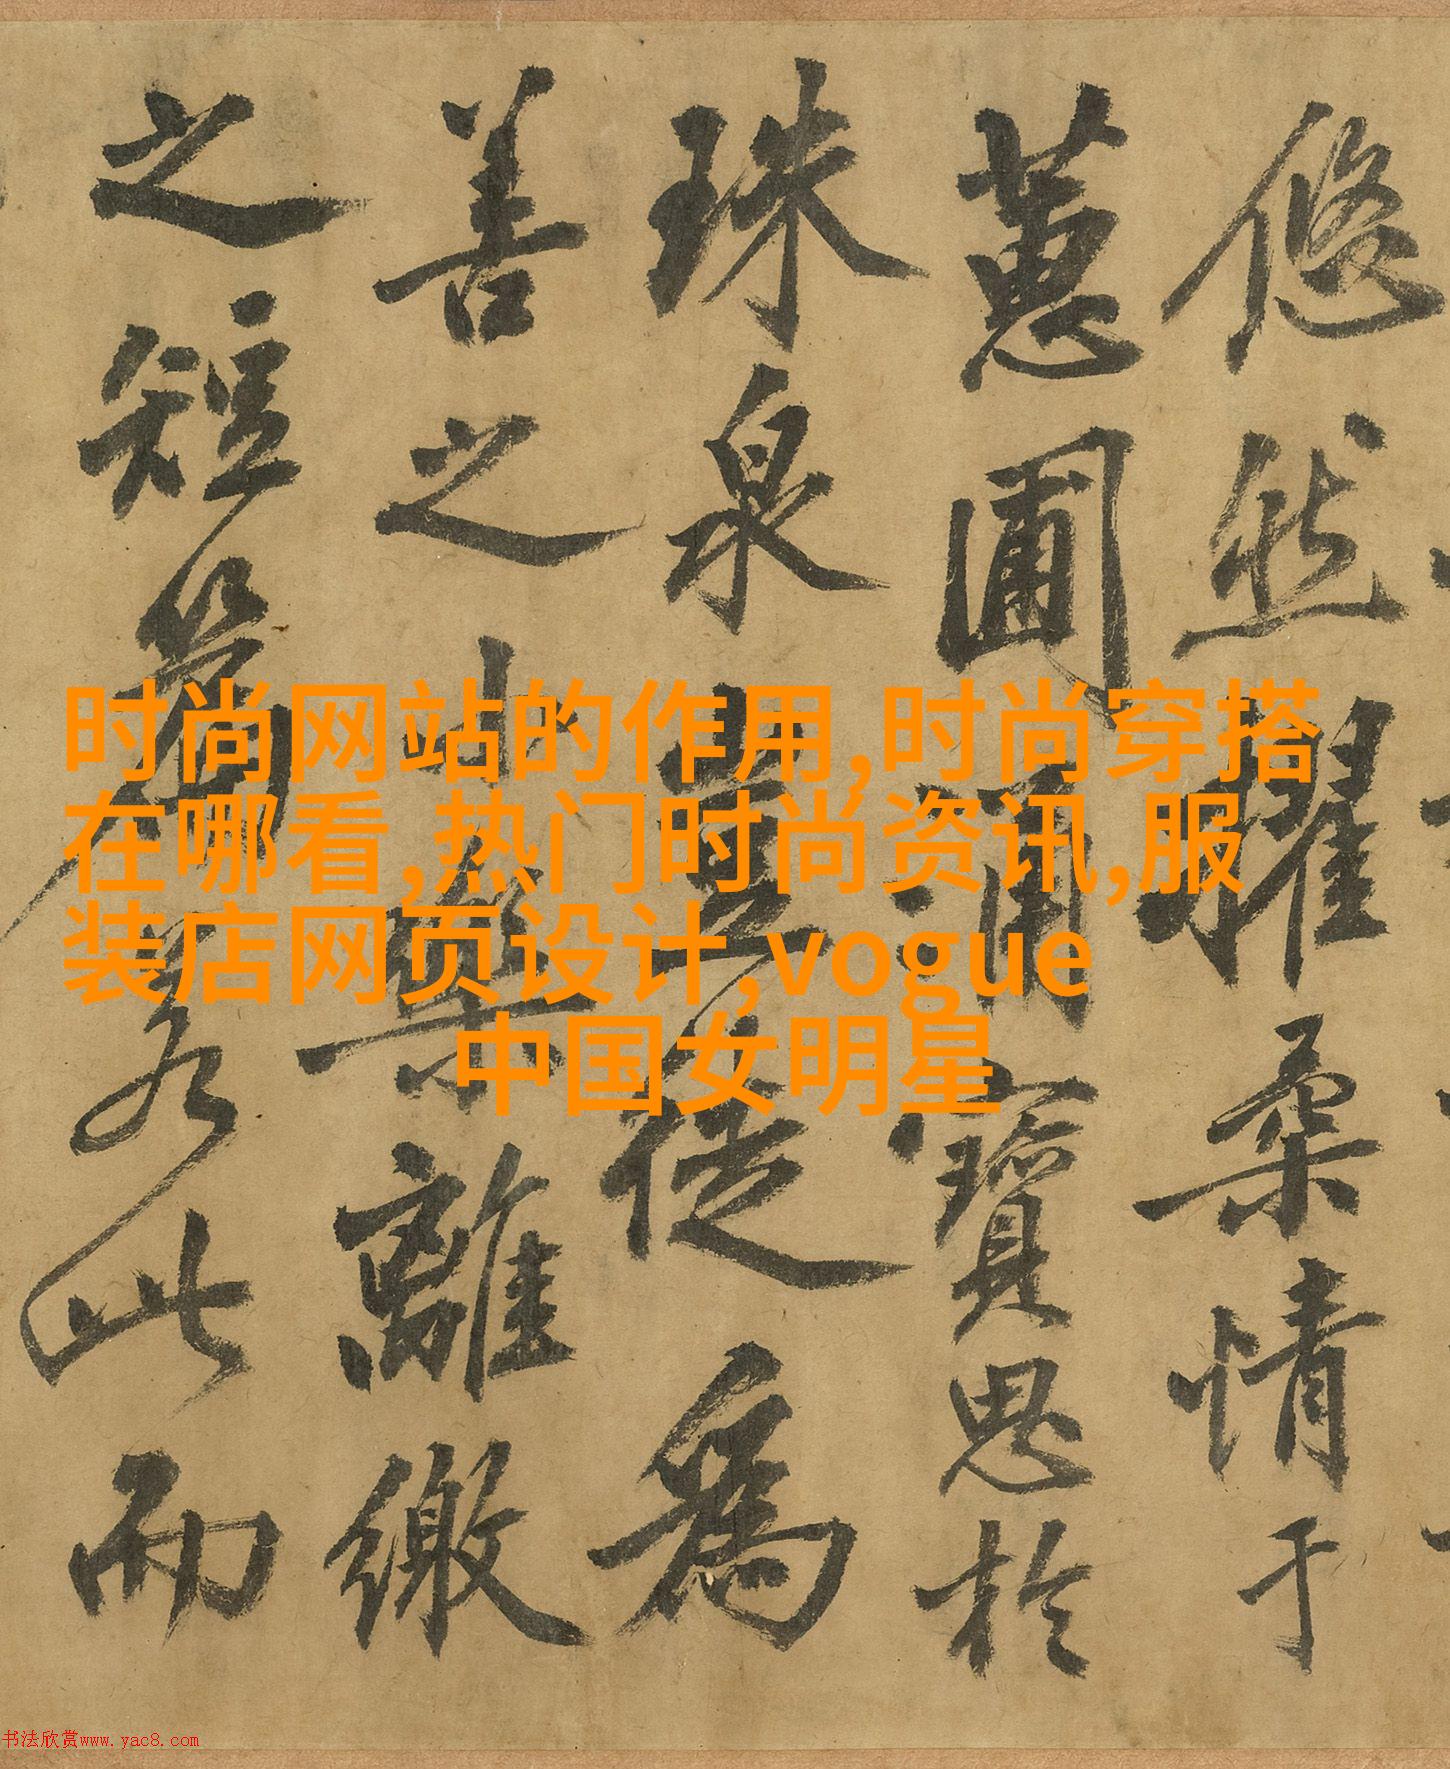 时尚网站的作用,时尚穿搭
在哪看,热门时尚资讯,服
装店网页设计,vogue
中国女明星
悠然擢柔情于
蕙圃涌寶思於
珠泉豈徒為
善之小樂離繳
之短篇若此而
书法欣赏www.yac8.com